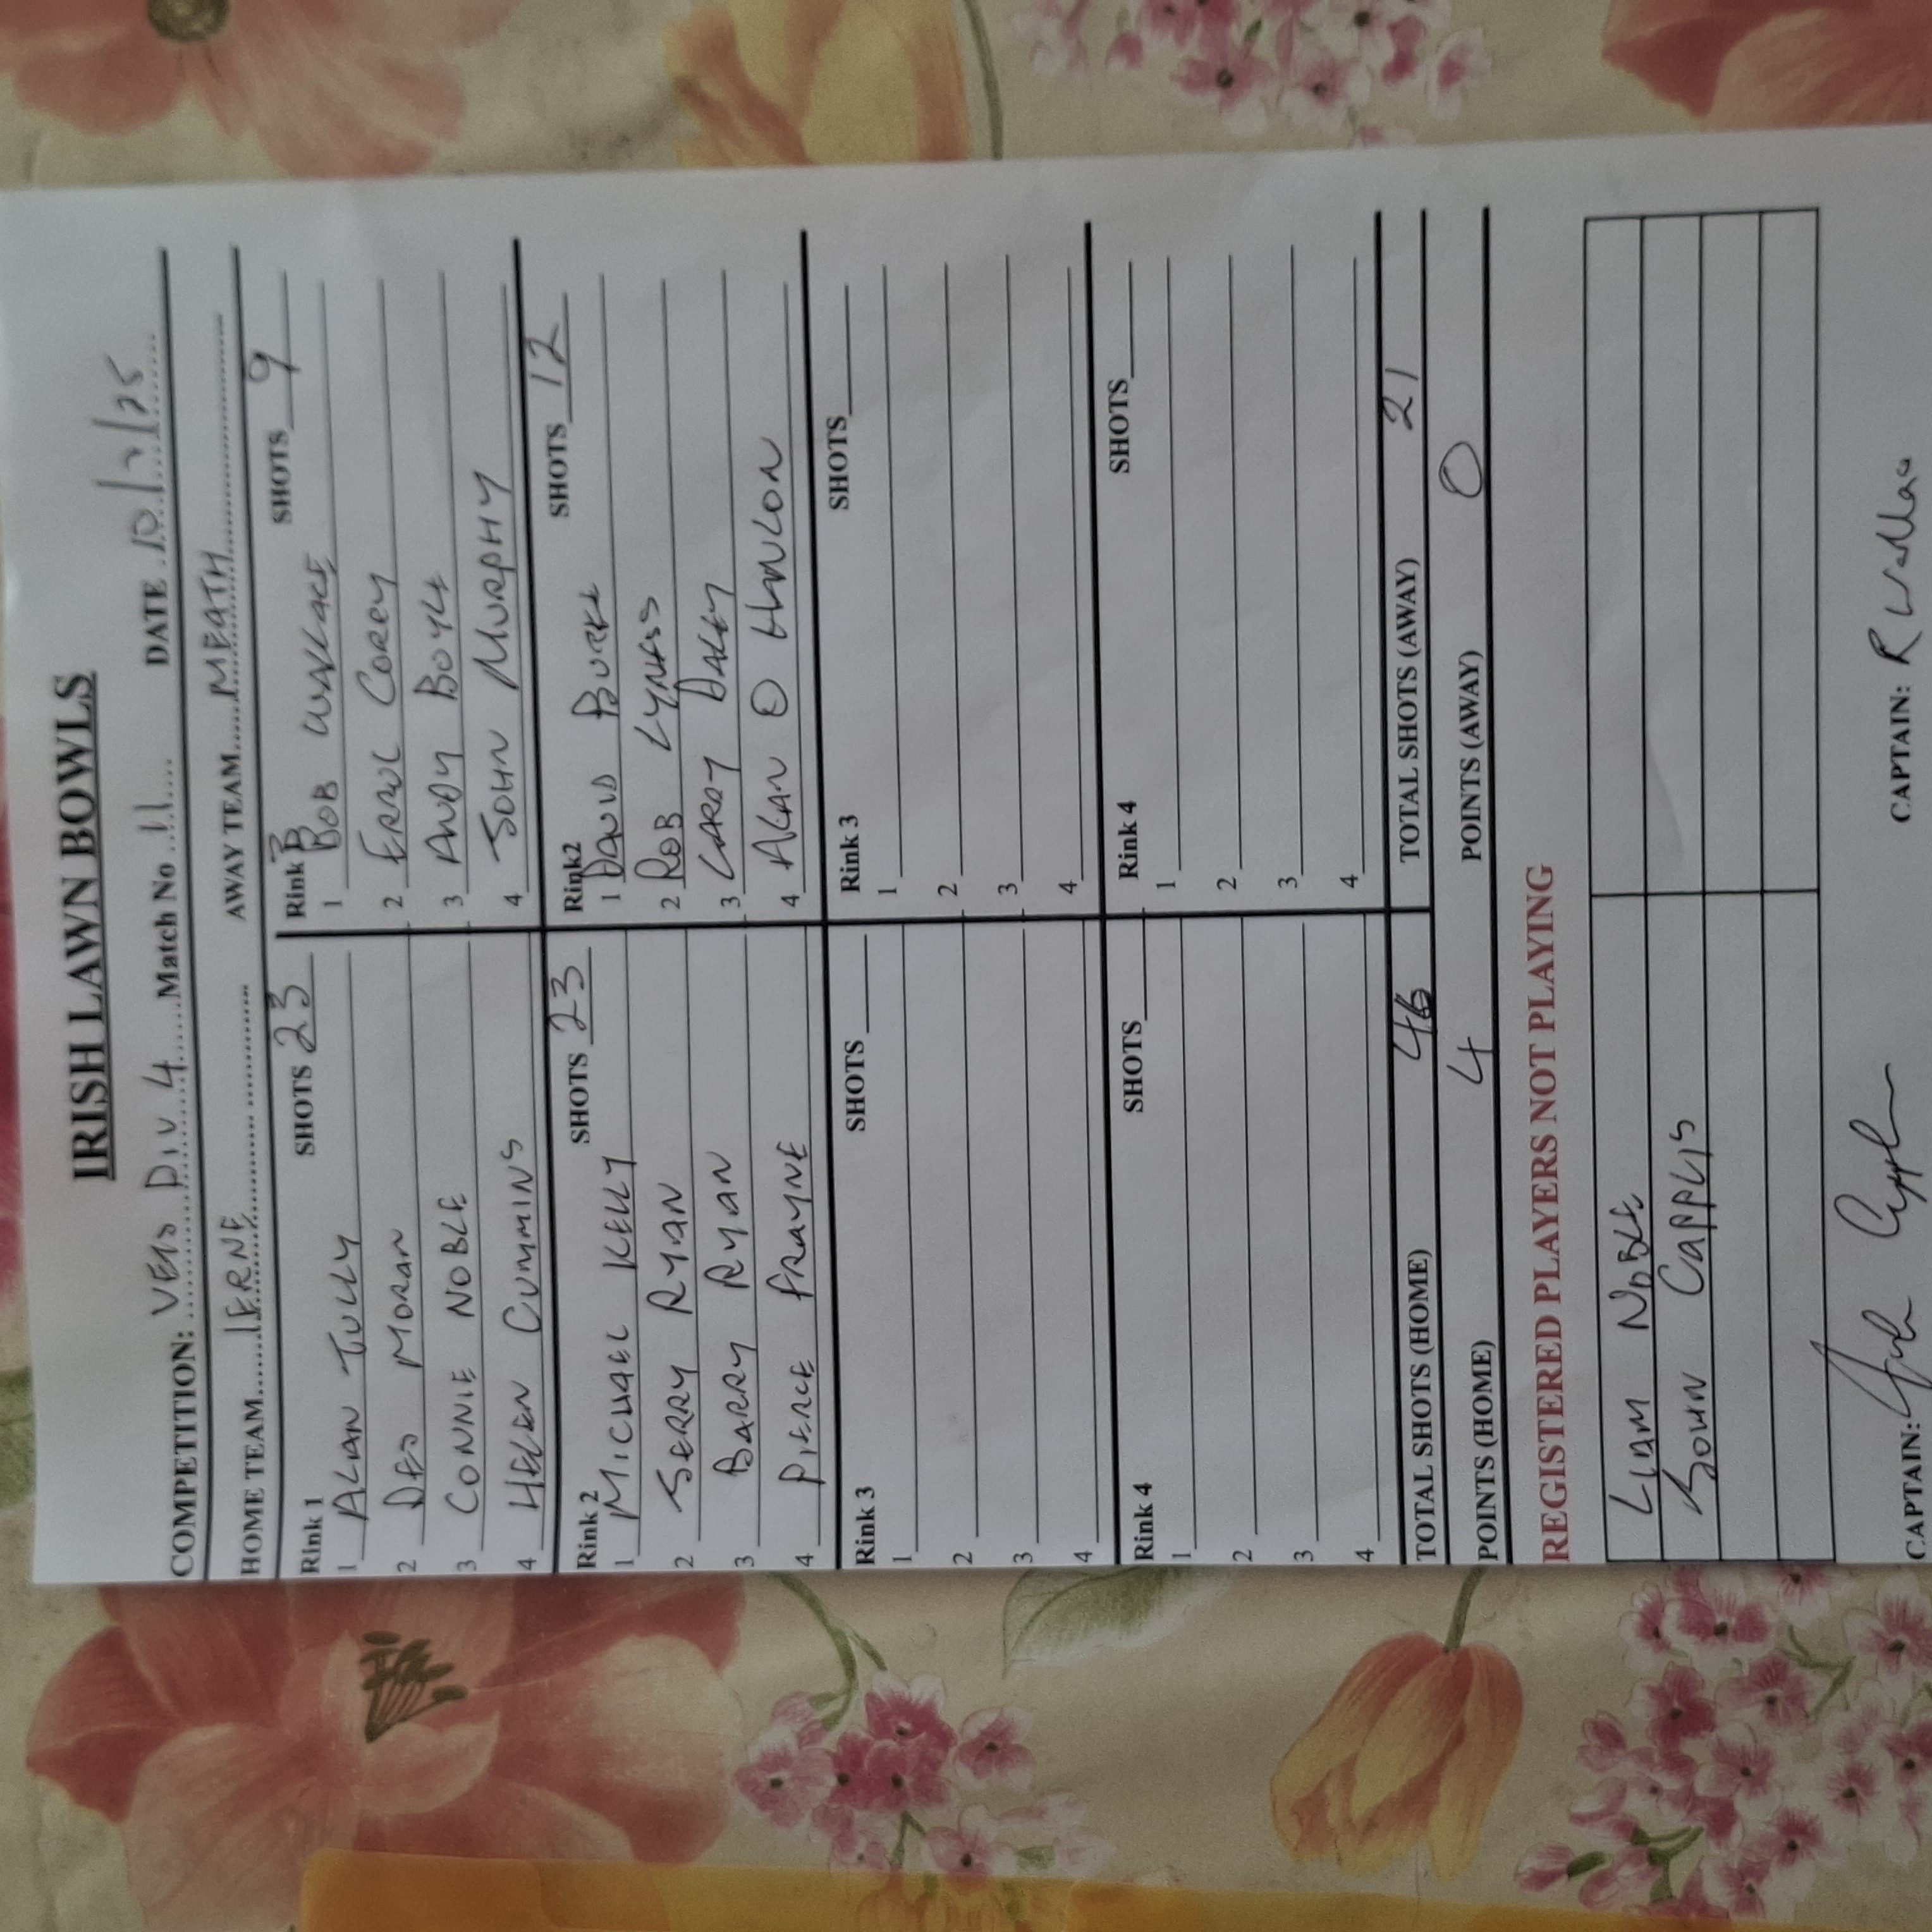 IRISH LAWN BOWLS
COMPETITION: VETS DIV 4 Match No 11 DATE 10/7/25
HOME TEAM IERNE AWAY TEAM MEATH
Rink 1 SHOTS 23
1 ALAN TULLY
2 DES MORAN
3 CONNIE NOBLE
4 HELEN CUMMINS
Rink SHOTS 9
1 BOB WALLACE
2 ERROL COREY
3 ANDY BOYLE
4 JOHN MURPHY
Rink 2 SHOTS 23
1 MICHAEL KELLY
2 GERRY RYAN
3 BARRY RYAN
4 PIERCE FRAYNE
Rink2 SHOTS 12
1 DAVID BURKE
2 ROB LYNASS
3 LARRY DALEY
4 ALAN O HANLON
Rink 3 SHOTS
1
2
3
4
Rink 3 SHOTS
1
2
3
4
Rink 4 SHOTS
1
2
3
4
Rink 4 SHOTS
1
2
3
4
TOTAL SHOTS (HOME) 46 TOTAL SHOTS (AWAY) 21
POINTS (HOME) 4 POINTS (AWAY) 0
REGISTERED PLAYERS NOT PLAYING
LIAM NOBLE
JOHN CAPPLIS
CAPTAIN: CAPTAIN: R Wallace